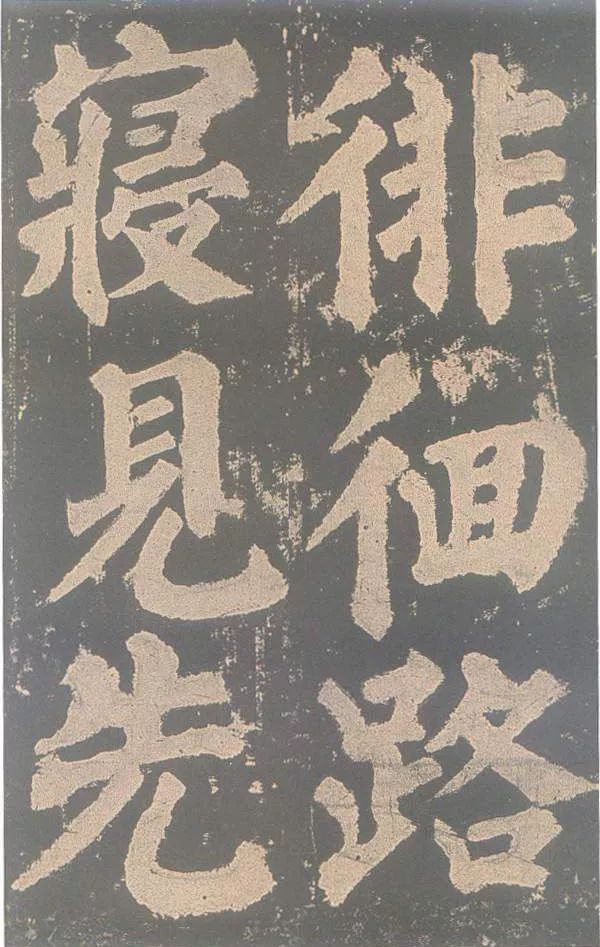 徘徊路
寢見先